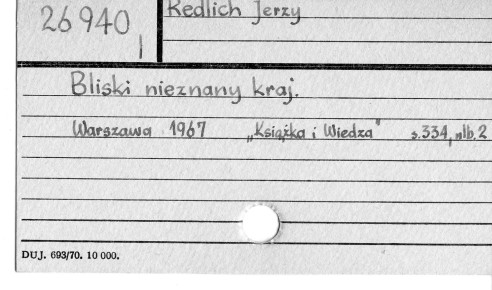 26 940
I
Redlich Jerzy
Bliski nieznany kraj.
Warszawa 1967 „Książka i Wiedza" s.334, nlb.2
DUJ. 693/70. 10 000.